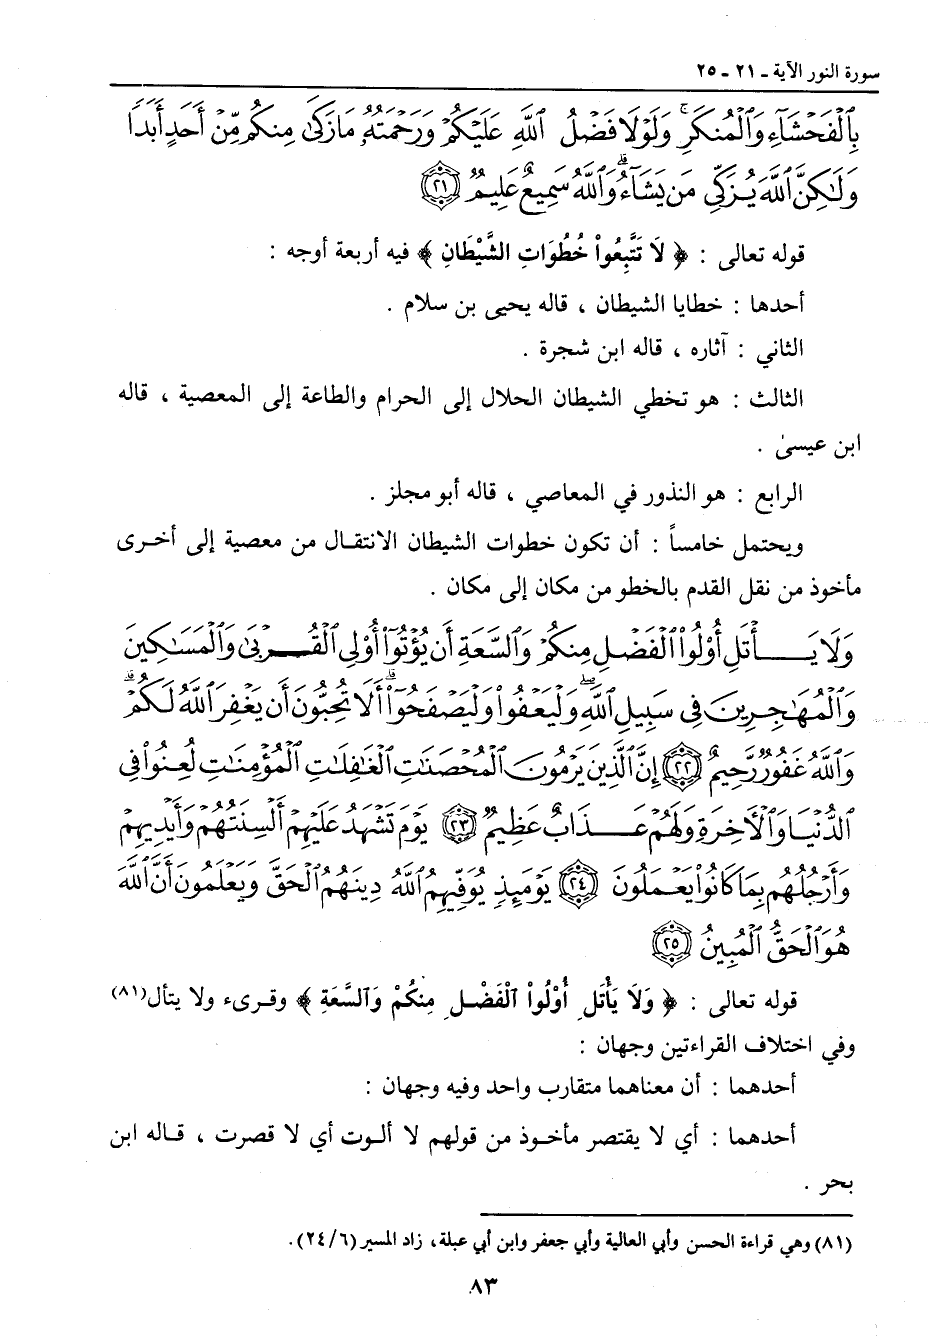 سورة النور الآية ـ ٢١ ـ ٢٥
بِٱلْفَحْشَآءِ وَٱلْمُنكَرِ ۚ وَلَوْلَا فَضْلُ ٱللَّهِ عَلَيْكُمْ وَرَحْمَتُهُۥ مَا زَكَىٰ مِنكُم مِّنْ أَحَدٍ أَبَدًا
وَلَـٰكِنَّ ٱللَّهَ يُزَكِّى مَن يَشَآءُ ۗ وَٱللَّهُ سَمِيعٌ عَلِيمٌ ﴿٢١﴾
قوله تعالى : ﴿ لَا تَتَّبِعُواْ خُطُوَاتِ الشَّيْطَانِ ﴾ فيه أربعة أوجه :
أحدها : خطايا الشيطان ، قاله يحيى بن سلام .
الثاني : آثاره ، قاله ابن شجرة .
الثالث : هو تخطي الشيطان الحلال إلى الحرام والطاعة إلى المعصية ، قاله
ابن عيسىٰ .
الرابع : هو النذور في المعاصي ، قاله أبو مجلز .
ويحتمل خامساً : أن تكون خطوات الشيطان الانتقال من معصية إلى أخرى
مأخوذ من نقل القدم بالخطو من مكان إلى مكان .
وَلَا يَأْتَلِ أُوْلُواْ ٱلْفَضْلِ مِنكُمْ وَٱلسَّعَةِ أَن يُؤْتُوٓاْ أُوْلِى ٱلْقُرْبَىٰ وَٱلْمَسَـٰكِينَ
وَٱلْمُهَـٰجِرِينَ فِى سَبِيلِ ٱللَّهِ ۖ وَلْيَعْفُواْ وَلْيَصْفَحُوٓاْ ۗ أَلَا تُحِبُّونَ أَن يَغْفِرَ ٱللَّهُ لَكُمْ ۗ
وَٱللَّهُ غَفُورٌ رَّحِيمٌ ﴿٢٢﴾ إِنَّ ٱلَّذِينَ يَرْمُونَ ٱلْمُحْصَنَـٰتِ ٱلْغَـٰفِلَـٰتِ ٱلْمُؤْمِنَـٰتِ لُعِنُواْ فِى
ٱلدُّنْيَا وَٱلْأَخِرَةِ وَلَهُمْ عَذَابٌ عَظِيمٌ ﴿٢٣﴾ يَوْمَ تَشْهَدُ عَلَيْهِمْ أَلْسِنَتُهُمْ وَأَيْدِيهِمْ
وَأَرْجُلُهُم بِمَا كَانُواْ يَعْمَلُونَ ﴿٢٤﴾ يَوْمَئِذٍ يُوَفِّيهِمُ ٱللَّهُ دِينَهُمُ ٱلْحَقَّ وَيَعْلَمُونَ أَنَّ ٱللَّهَ
هُوَ ٱلْحَقُّ ٱلْمُبِينُ ﴿٢٥﴾
قوله تعالى : ﴿ وَلَا يَأْتَلِ أُوْلُواْ ٱلْفَضْلِ مِنكُمْ وَٱلسَّعَةِ ﴾ وقرىء ولا يتأل(٨١)
وفي اختلاف القراءتين وجهان :
أحدهما : أن معناهما متقارب واحد وفيه وجهان :
أحدهما : أي لا يقتصر مأخوذ من قولهم لا ألوت أي لا قصرت ، قاله ابن
بحر .
(٨١) وهي قراءة الحسن وأبي العالية وأبي جعفر وابن أبي عبلة، زاد المسير (٢٤/٦).
٨٣